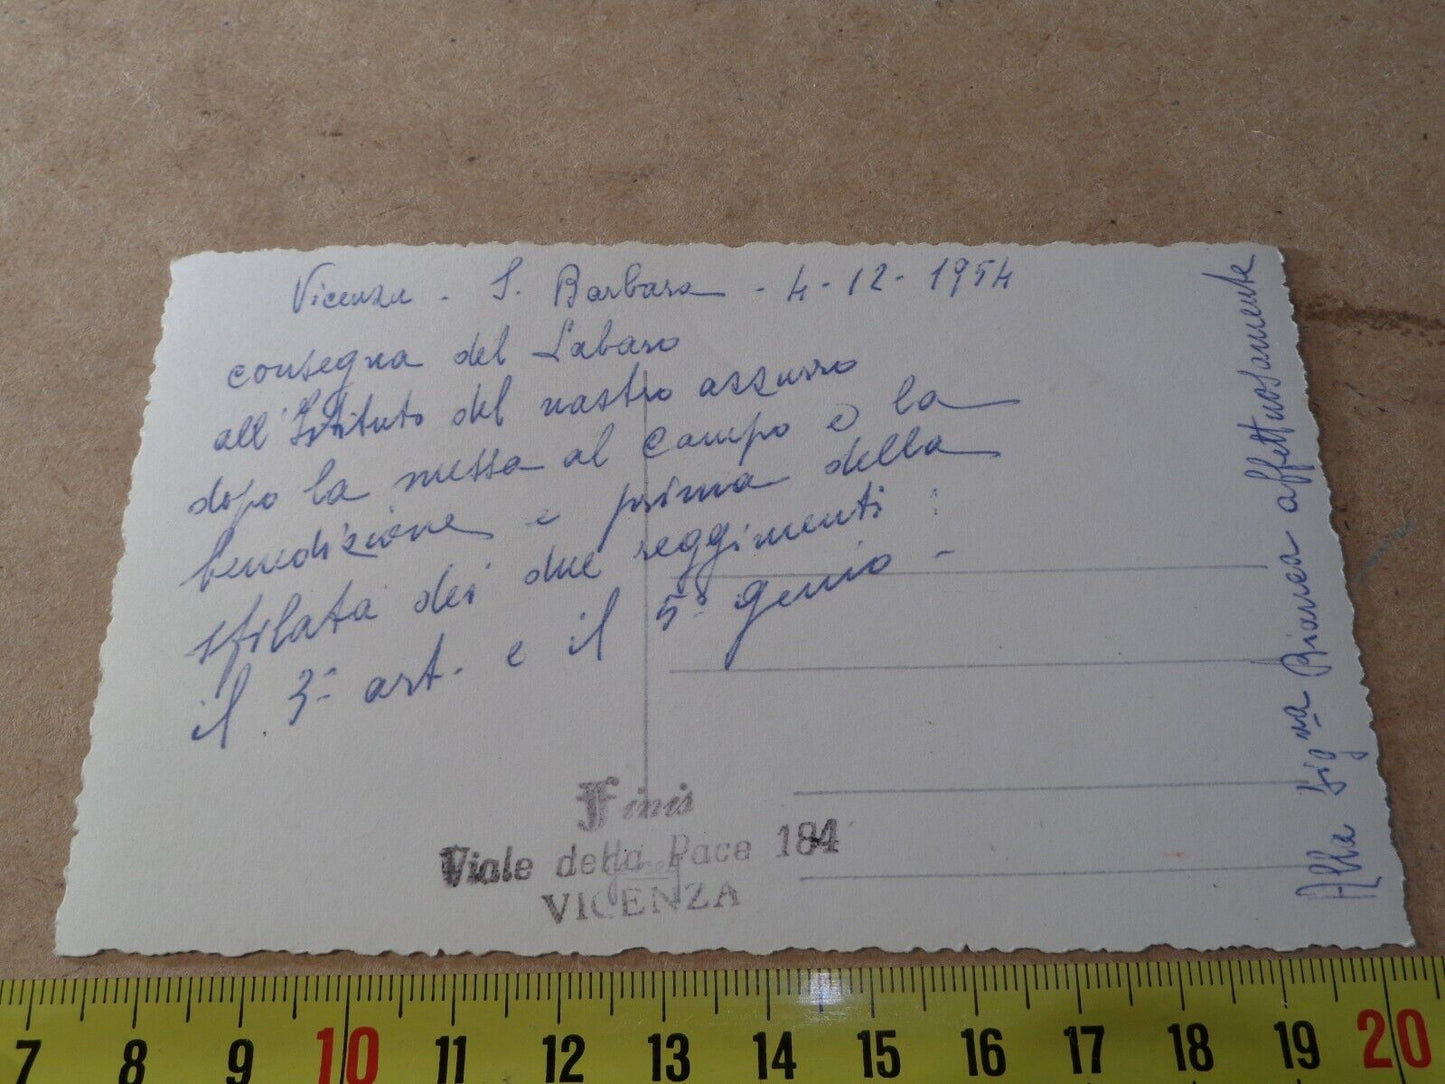 Vicenza - S. Barbara - 4-12-1954
consegna del Labaro
all'Istituto del nastro azzurro
dopo la messa al campo e la
benedizione e prima della
sfilata dei due reggimenti :
il 3º art. e il 5º genio -
Finis
Viale della Pace 184
VICENZA
Alla Sig.na Bianca affettuosamente
7 8 9 10 11 12 13 14 15 16 17 18 19 20